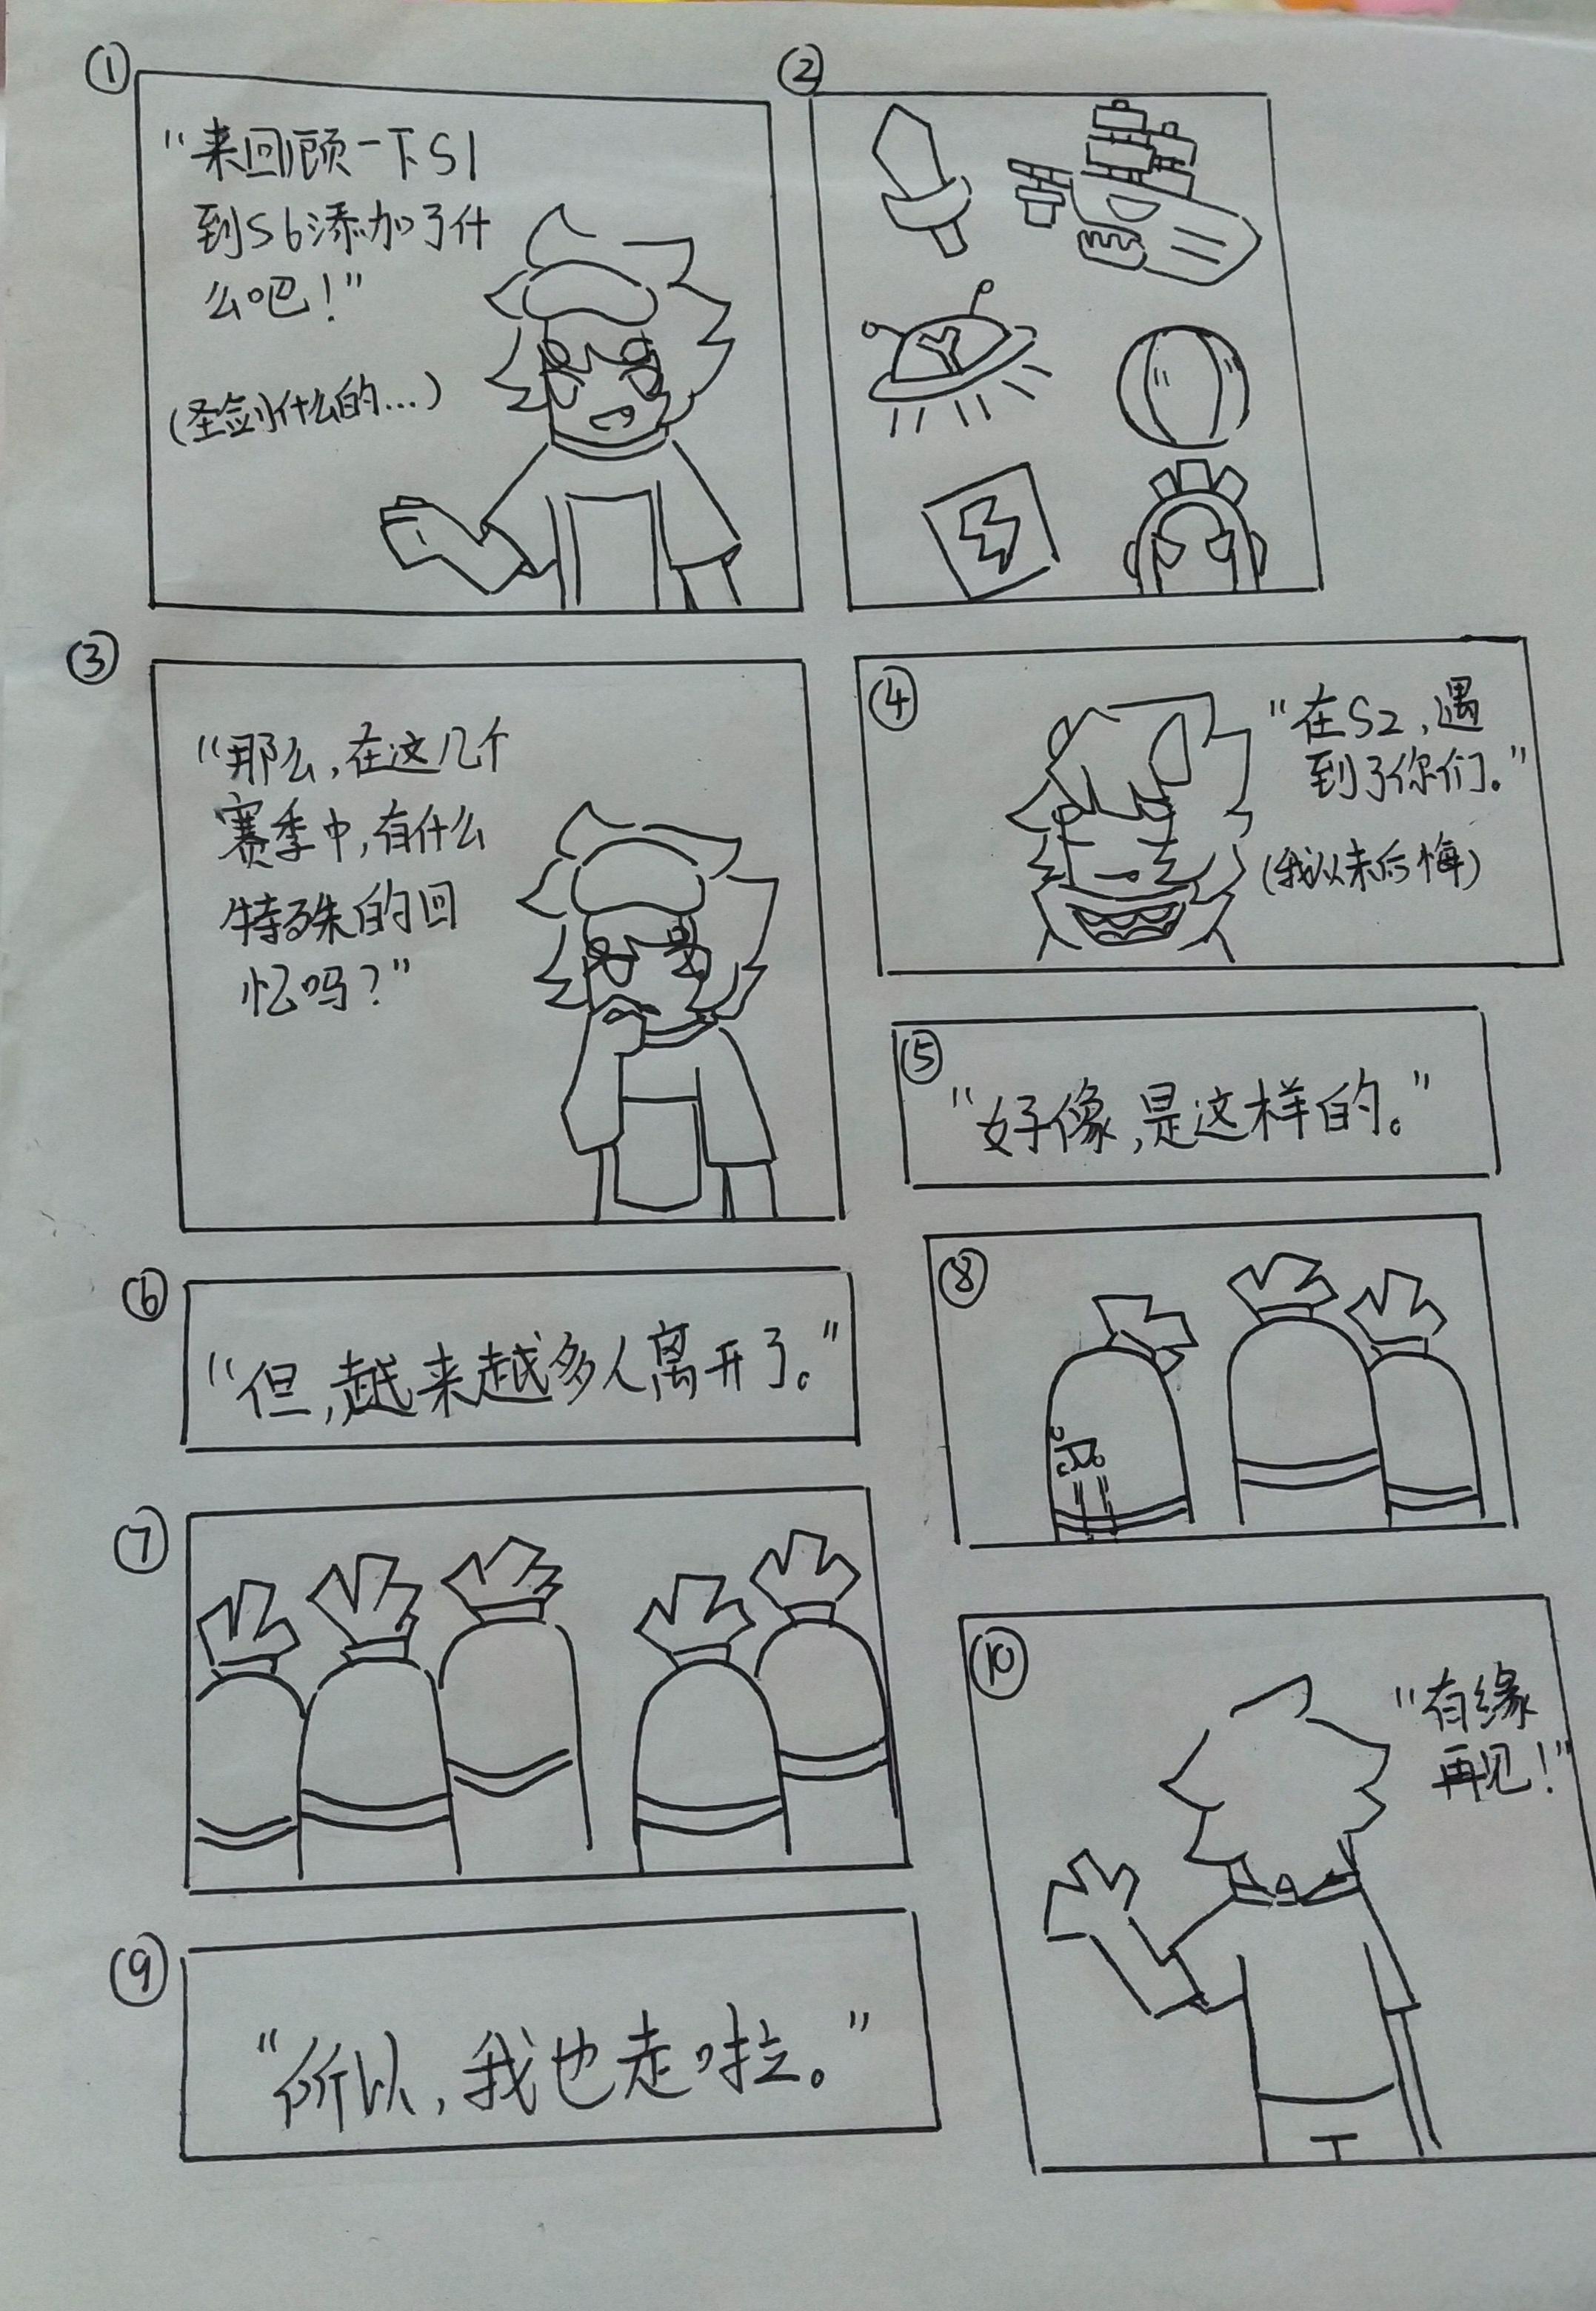 ①
"来回顾一下S1
到S6添加了什
么吧！"
(圣剑什么的...)
②
③
"那么,在这几个
赛季中,有什么
特殊的回
忆吗?"
④
"在S2,遇
到了你们。"
(我从未后悔)
⑤
"好像,是这样的。"
⑥
"但,越来越多人离开了。"
⑦
⑧
⑨
"所以,我也走啦。"
⑩
"有缘
再见！"